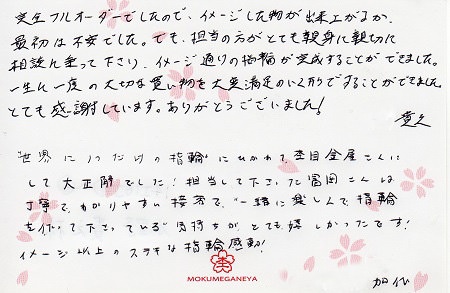 完全フルオーダーでしたので、イメージした物が出来上がるか、
最初は不安でした。でも、担当の方がとても親身に親切に
相談に乗って下さり、イメージ通りの指輪が完成することができました。
一生に一度の大切な買い物を大変満足のいく形ですることができました
とても感謝しています。ありがとうございました！
"世界に1つだけの指輪"にひかれて、杢目金屋さんに
して大正解でした！担当して下さった富岡さんは
丁寧で、わかりやすい接客で、"一緒に楽しんで指輪
を作って下さっている"気持ちがとても嬉しかったです！
イメージ以上のステキな指輪感動！
MOKUMEGANEYA